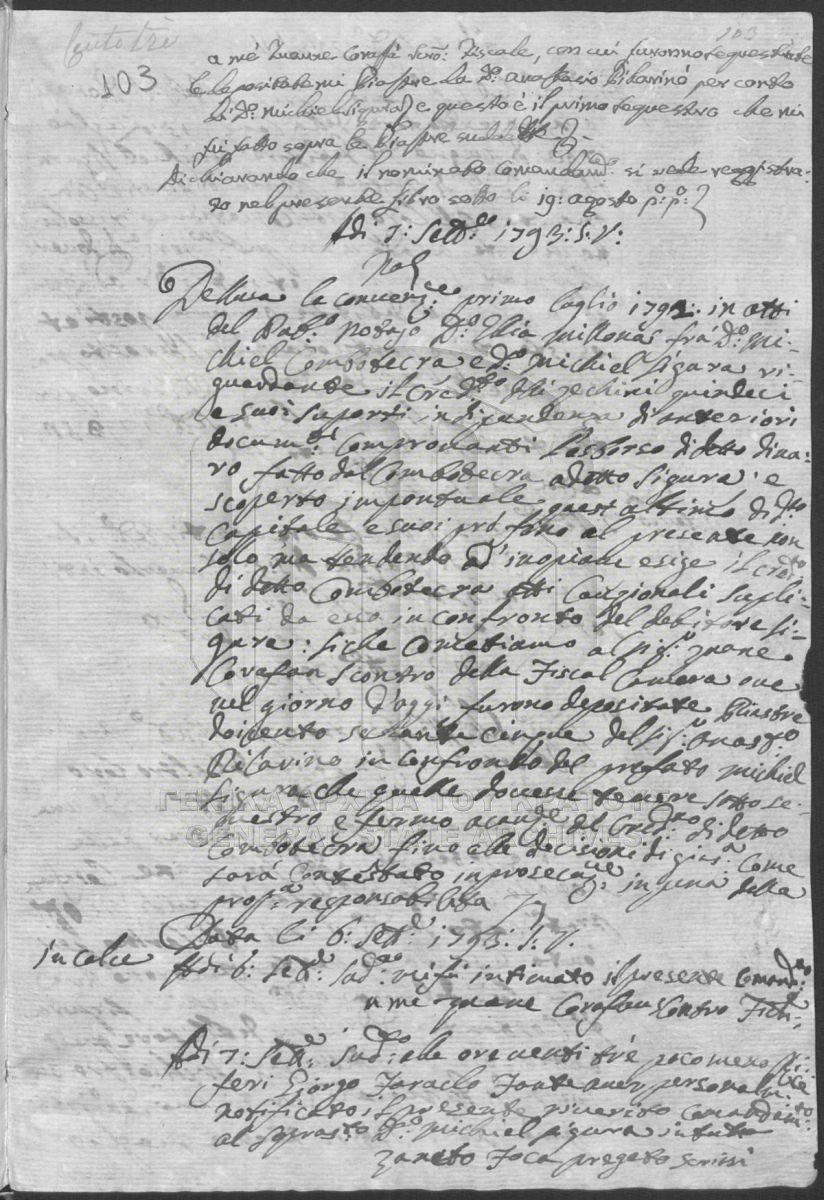 Cento tre
103
103
a me Zuanne Coraffà Scro: Fiscale, con cui furonno sequestrate
e depositatemi Piastre la Do: Anastasio Pilarinò per conto
di Do: Michiel Sigura, e questo è il primo sequestro che mi
fu fatto sopra le Piastre sudde
Dichiarando che il nominato Comandamto: si vede reggistra-
to nel presente libro sotto li 19: agosto po: po:
Adi 7: Setbre 1793: S: V:
Noi
Dedusa la converze primo luglio 1792: in atti
del Pubco Nodajo Do: Ilia Millonas frà Do: Mi-
chiel Combotecra e Do: Michiel Sigura ri-
guardante il Credto di zechini quindeci
e suoi suporti in dipendenza di anteriori
documti Comprovanti l'esborso di detto dina-
ro fatto dal Combotecra a detto Sigura: e
scoperto impontuale quest'ultimo di dtto
Capitale e suoi prò fino al presente non
solo ma tendendo ad inopiam esige il Credto
di detto Combotecra atti Cauzionali supli-
cati da esso in confronto del debitore Si-
gura: siche Cometiamo al Sigr Zuane
Corafan Scontro della Fiscal Camera ove
nel giorno d'oggi furono depositate Piastre
doicento setanta cinque del Sigr Anasto
Pilarino in confronto del prefato Michiel
Sigura che quelle dovesse tenere sotto se-
questro e fermo a cauzne del Credto di detto
Combotecra fino alle decisioni di giusa Come
sarà Contestato in prosecuzne in pena della
propa responsabilità
Data li 6: Setbre 1793: S: V.
in calce
Adi 6: Setbre Sudto mi fù intimato il presente Comandto
a me Zuane Corafan Scontro Fisle
Adi 7: Setbre Sudto alle ore venti trè poco meno
ferì Giorgo Fante aver personalmte
notificato il presente riverito Comandamto
al soprasto Do: Michiel Sigura in tutto
Zaneto Foca pregato scrissi